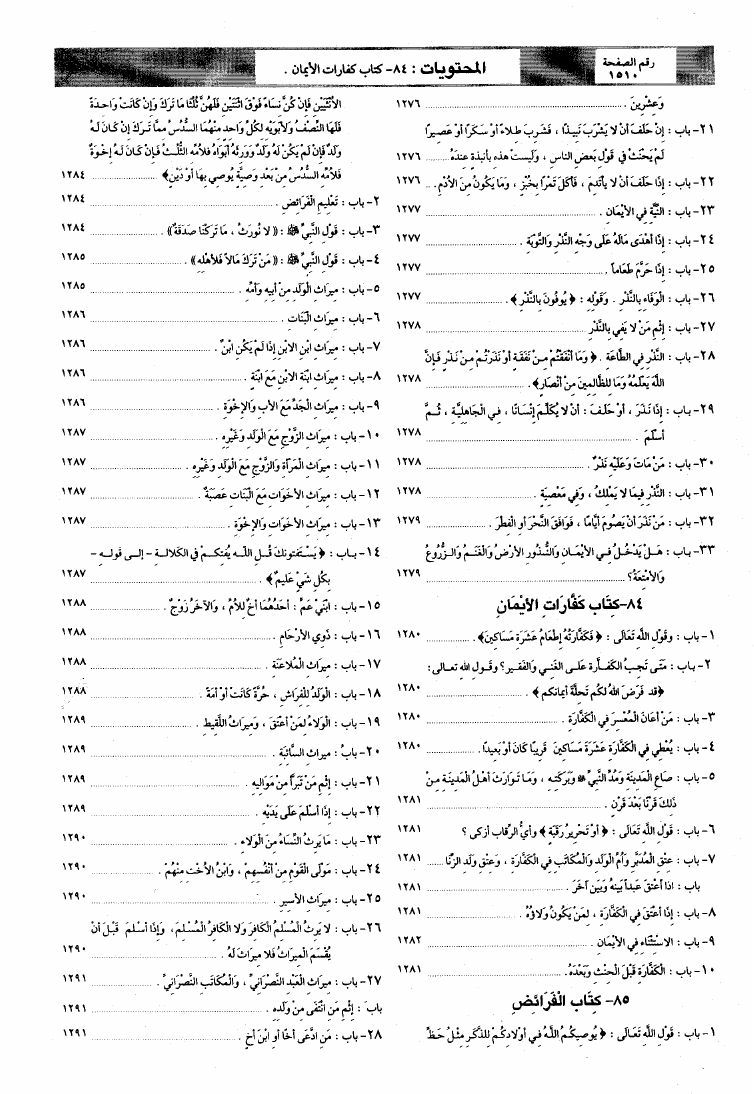 رقم الصفحة
١٥١٠
المحتويات : ٨٤- كتاب كفارات الأيمان .
وَعشْرينَ . ١٢٧٦
٢١- باب : إنْ حَلَفَ أنْ لا يَشْرَبَ نَبِيذًا ، فَشَرِبَ طلاءً أوْ سَكَرًا أوْ عَصِيرًا
لَمْ يَحْنَثْ في قَوْل بَعض الناس ، وَلَيسَت هذه بأنبذة عندَهُ ١٢٧٦
٢٢- باب : إذَا حَلَفَ أن لا يَأتَدِمَ ، فَأكَلَ تَمْرًا بِخُبْزٍ ، وَمَا يَكُونُ منَ الأدْمِ . ١٢٧٦
٢٣- باب : النِّيَّة في الأيْمَان . ١٢٧٧
٢٤- باب : إذَا أهْدَى مَالَهُ عَلَى وَجْه النَّذْر وَالتَّوْبَة . ١٢٧٧
٢٥- باب : إذَا حَرَّمَ طَعَامًا . ١٢٧٧
٢٦- باب : الوَفَاء بالنَّذْر . وَقَوْله : ﴿ يُوفُونَ بالنَّذْر ﴾ . ١٢٧٧
٢٧- باب : إثْم مَنْ لا يَفي بالنَّذْر ١٢٧٨
٢٨- باب : النَّذْر في الطَّاعَة . ﴿ وَمَا أنْفَقْتُمْ مِنْ نَفَقَة أوْ نَذَرْتُمْ مِنْ نَذْرٍ فَإنَّ
اللَّهَ يَعْلَمُهُ وَمَا للظَّالِمِينَ مِنْ أنْصَارٍ ﴾ . ١٢٧٨
٢٩- باب : إذَا نَذَرَ ، أوْ حَلَفَ : أنْ لا يُكَلِّمَ إنْسَانًا ، في الجَاهِلِيَّة ، ثُمَّ
أسْلَمَ . ١٢٧٨
٣٠- باب : مَنْ مَاتَ وَعَلَيْه نَذْرٌ . ١٢٧٨
٣١- باب : النَّذْرِ فيمَا لا يَمْلكُ ، وَفي مَعْصيَة . ١٢٧٨
٣٢- باب : مَنْ نَذَرَ أنْ يَصُومَ أيَّامًا ، فَوَافَقَ النَّحْرَ أو الفِطْرَ . ١٢٧٩
٣٣- باب : هَلْ يَدْخُلُ في الأيْمَان وَالنُّذُور الأرْضُ وَالغَنَمُ وَالزُّرُوعُ
وَالأمْتعَةُ؟ ١٢٧٩
٨٤-كتَاب كَفَّارَات الأيْمَان
١- باب : وَقَوْل اللَّه تَعَالَى : ﴿ فَكَفَّارَتُهُ إطعَامُ عَشَرَة مَسَاكينَ ﴾ . ١٢٨٠
٢- باب : مَتَى تَجبُ الكَفَّارَة عَلَى الغَنيِّ وَالفَقير؟ وقول الله تعالى :
﴿قد فَرَضَ اللهُ لَكُم تَحلَّةَ أيمَانكُم﴾ . ١٢٨٠
٣- باب : مَنْ أعَانَ الْمُعْسرَ في الكَفَّارَة . ١٢٨٠
٤- باب : يُعْطي في الكَفَّارَة عَشَرَةَ مَسَاكينَ قَريبًا كَانَ أوْ بَعيدًا . ١٢٨٠
٥- باب : صَاع المَدينَة وَمُدِّ النَّبيِّ ﷺ وَبَرَكَته ، وَمَا تَوَارَثَ أهْلُ المَدينَة منْ
ذَلكَ قَرْنًا بَعْدَ قَرْن . ١٢٨١
٦- باب : قَوْل اللَّه تَعَالَى : ﴿ أوْ تَحْريرُ رَقَبَة ﴾ وَأيُّ الرِّقَاب أزْكَى ؟ ١٢٨١
٧- باب : عتْق المُدَبَّر وَأمِّ الوَلَد وَالمُكَاتَب في الكَفَّارَة ، وَعتْق وَلَد الزِّنَا ١٢٨١
باب : اذا أعْتَقَ عَبداً بَينَهُ وَبَين آخَرَ . ١٢٨١
٨- باب : إذَا أعْتَقَ في الكَفَّارَة ، لمَنْ يَكُونُ وَلاؤُهُ . ١٢٨١
٩- باب : الاسْتثْنَاء في الأيْمَان . ١٢٨٢
١٠- باب : الكَفَّارَة قَبْلَ الحنْث وَبَعْدَهُ . ١٢٨١
٨٥- كتَاب الْفَرَائض
١- باب : قَوْل اللَّه تَعَالَى : ﴿ يُوصيكُمُ اللَّهُ في أوْلادكُمْ للذَّكَر مثْلُ حَظِّ
الأنْثَيَيْن فَإنْ كُنَّ نسَاءً فَوْقَ اثْنَتَيْن فَلَهُنَّ ثُلُثَا مَا تَرَكَ وَإنْ كَانَتْ وَاحدَةً
فَلَهَا النِّصْفُ وَلأبَوَيْه لكُلِّ وَاحد منْهُمَا السُّدُسُ ممَّا تَرَكَ إنْ كَانَ لَهُ
وَلَدٌ فَإنْ لَمْ يَكُنْ لَهُ وَلَدٌ وَوَرثَهُ أبَوَاهُ فَلأمِّه الثُّلُثُ فَإنْ كَانَ لَهُ إخْوَةٌ
فَلأمِّه السُّدُسُ منْ بَعْد وَصيَّة يُوصي بهَا أوْ دَيْن﴾ . ١٢٨٤
٢- باب : تَعْليم الْفَرَائض . ١٢٨٤
٣- باب : قَوْل النَّبيِّ ﷺ : « لا نُورَثُ ، مَا تَرَكْنَا صَدَقَةٌ » . ١٢٨٤
٤- باب : قَوْل النَّبيِّ ﷺ : « مَنْ تَرَكَ مَالاً فَلأهْله » . ١٢٨٥
٥- باب : ميرَاث الْوَلَد منْ أبيه وَأمِّه . ١٢٨٥
٦- باب : ميرَاث الْبَنَات . ١٢٨٦
٧- باب : ميرَاث ابْن الابْن إذَا لَمْ يَكُن ابْنٌ . ١٢٨٦
٨- باب : ميرَاث ابْنَة الابْن مَعَ ابْنَة . ١٢٨٦
٩- باب : ميرَاث الْجَدِّ مَعَ الأب وَالإخْوَة . ١٢٨٦
١٠- باب : ميرَاث الزَّوْج مَعَ الْوَلَد وَغَيْره . ١٢٨٧
١١- باب : ميرَاث الْمَرْأة وَالزَّوْج مَعَ الْوَلَد وَغَيْره . ١٢٨٧
١٢- باب : ميرَاث الأخَوَات مَعَ الْبَنَات عَصَبَةً . ١٢٨٧
١٣- باب : ميرَاث الأخَوَات وَالإخْوَة . ١٢٨٧
١٤- باب : ﴿ يَسْتَفْتُونَكَ قُل اللَّه يُفْتيكُمْ في الكَلالَة - إلى قوله -
بكُلِّ شَيْءٍ عَليمٌ﴾ . ١٢٨٧
١٥- باب : ابْنَيْ عَمٍّ : أحَدُهُمَا أخٌ للأمِّ ، وَالآخَرُ زَوْجٌ . ١٢٨٨
١٦- باب : ذَوي الأرْحَام . ١٢٨٨
١٧- باب : ميرَاث الْمُلاعَنَة . ١٢٨٨
١٨- باب : الْوَلَدُ للْفرَاش ، حُرَّةً كَانَتْ أوْ أمَةً . ١٢٨٨
١٩- باب : الْوَلاءُ لمَنْ أعْتَقَ ، وَميرَاثُ اللَّقيط . ١٢٨٩
٢٠- بابُ : ميراث السَّائبَة . ١٢٨٩
٢١- باب : إثْم مَنْ تَبَرَّأ منْ مَوَاليه . ١٢٨٩
٢٢- باب : إذَا أسْلَمَ عَلَى يَدَيْه . ١٢٨٩
٢٣- باب : مَا يَرثُ النِّسَاءُ منَ الْوَلاء . ١٢٩٠
٢٤- باب : مَوْلَى الْقَوْم منْ أنْفُسهمْ ، وَابْنُ الأخْت منْهُمْ . ١٢٩٠
٢٥- باب : ميرَاث الأسير . ١٢٩٠
٢٦- باب : لا يَرثُ الْمُسْلمُ الْكَافرَ وَلا الْكَافرُ الْمُسْلمَ، وَإذَا أسْلَمَ قَبْلَ أنْ
يُقْسَمَ الْميرَاثُ فَلا ميرَاثَ لَهُ . ١٢٩٠
٢٧- باب : ميرَاث الْعَبْد النَّصْرَانيِّ ، وَالْمُكَاتَب النَّصْرَانيِّ . ١٢٩١
بابَ : إثْم مَن انْتَفَى منْ وَلَده . ١٢٩١
٢٨- باب : مَن ادَّعَى أخًا أو ابْنَ أخٍ ١٢٩١